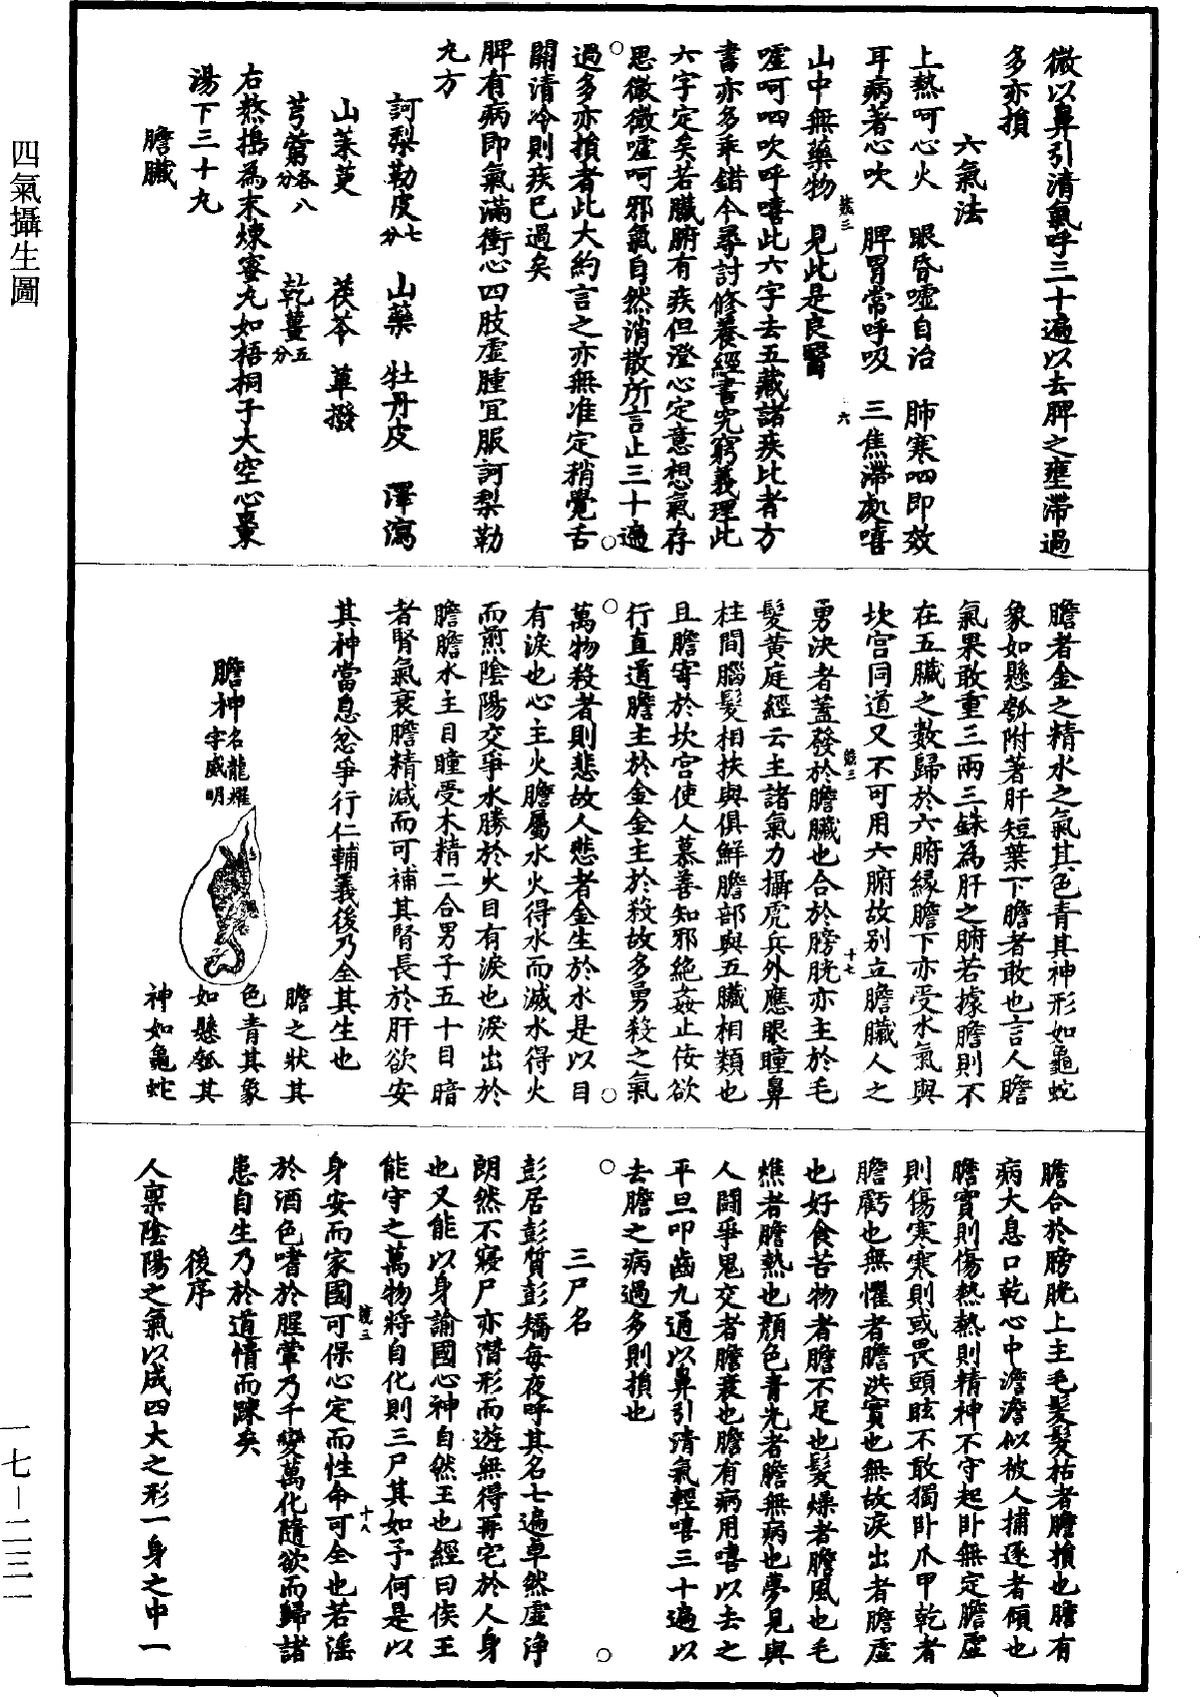 四氣攝生圖
微以鼻引清氣呼三十遍以去脾之壅滯過
多亦損
六氣法
上熱呵心火　眼昏噓自治　肺寒呬即效
耳病著心吹　脾胃常呼吸　三焦滯處嘻
山中無藥物　見此是良醫
號三　六
噓呵呬吹呼嘻此六字去五藏諸疾比者方
書亦多乖錯今尋討修養經書究窮義理此
六字定矣若臟腑有疾但澄心定意想氣存
思微微噓呵邪氣自然消散所言止三十遍
過多亦損者此大約言之亦無准定稍覺舌
關清冷則疾已過矣
脾有病即氣滿衝心四肢虛腫宜服訶梨勒
丸方
訶梨勒皮七分　山藥　牡丹皮　澤瀉
山茱萸　茯苓　蓽撥
芎藭各八分　乾薑五分
右熬擣為末煉蜜丸如梧桐子大空心棗
湯下三十丸
膽臟
膽者金之精水之氣其色青其神形如龜蛇
象如懸瓠附著肝短葉下膽者敢也言人膽
氣果敢重三兩三銖為肝之腑若據膽則不
在五臟之數歸於六腑緣膽下亦受水氣與
坎宫同道又不可用六腑故别立膽臟人之
號三　十七
勇決者蓋發於膽臟也合於膀胱亦主於毛
髮黃庭經云主諸氣力攝虎兵外應眼瞳鼻
柱間腦髮相扶與俱鮮膽部與五臟相類也
且膽寄於坎宫使人慕善知邪絶姦止佞欲
行直道膽主於金金主於殺故多勇殺之氣
萬物殺者則悲故人悲者金生於水是以目
有淚也心主火膽屬水火得水而滅水得火
而煎陰陽交爭水勝於火目有淚也淚出於
膽膽水主目瞳受木精二合男子五十目暗
者腎氣衰膽精減而可補其腎長於肝欲安
其神當息忿爭行仁輔義後乃全其生也
膽神名龍耀字威明
膽之狀其
色青其象
如懸瓠其
神如龜蛇
膽合於膀胱上主毛髮髮枯者膽損也膽有
病大息口乾心中澹澹似被人捕逐者傾也
膽實則傷熱熱則精神不守起卧無定膽虛
則傷寒寒則或畏頭眩不敢獨卧爪甲乾者
膽虧也無懼者膽洪實也無故淚出者膽虛
也好食苦物者膽不足也髮燥者膽風也毛
燋者膽熱也顏色青光者膽無病也夢見與
人鬪爭鬼交者膽衰也膽有病用嘻以去之
平旦叩齒九通以鼻引清氣輕嘻三十遍以
去膽之病過多則損也
三尸名
彭居彭質彭矯每夜呼其名七遍卓然虛淨
朗然不寢尸亦潛形而遊無得再宅於人身
也又能以身諭國心神自然王也經曰侯王
能守之萬物將自化則三尸其如予何是以
號三　十八
身安而家國可保心定而性命可全也若滛
於酒色嗜於腥葷乃千變萬化隨欲而歸諸
患自生乃於道情而踈矣
後序
人稟陰陽之氣以成四大之形一身之中一
一七—二三一